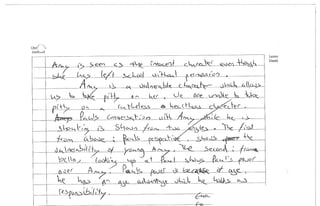 Amy is seen as the inocent character even though
she has left school without permission.
Amy is a vulnerable character which allows
us to take pitty on her. We are unable to take
pitty on a ruthless & heartless character.
Paul's conversation with Amy while he is
shouting is shown from two angles. The first
from above; Paul's perspective, shows the
vulnerability of young Amy. The second; from
below, looking up at Paul shows Paul's power
over Amy. Paul's power is because of age,
he has an age advantage which he holds no
responsibility.